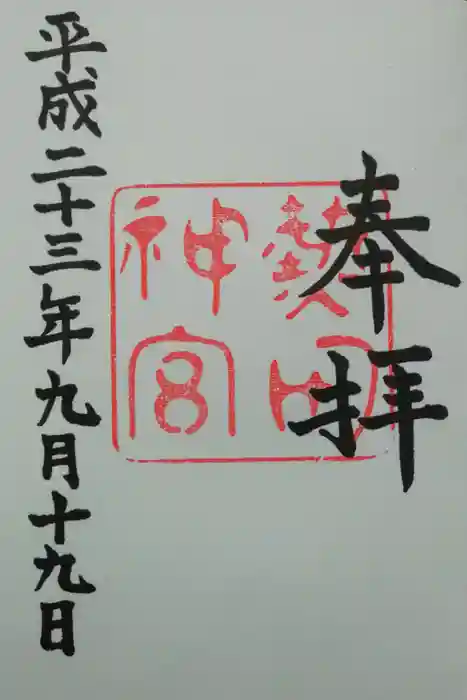 奉拝
熱田
神宮
平成二十三年九月十九日